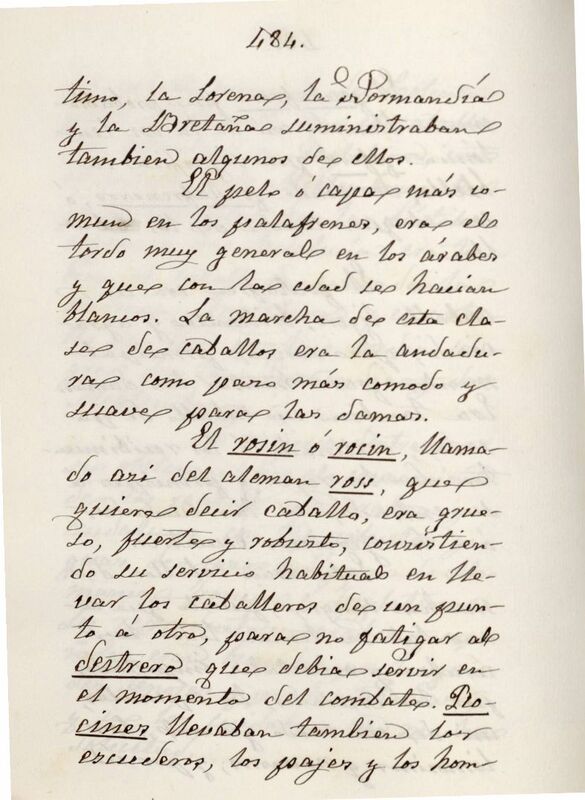 484.
timo, la Lorena, la Normandía
y la Bretaña suministraban
tambien algunos de ellos.
El pelo ó capa más co-
mun en los palafrenes, era el
tordo muy general en los árabes
y que con la edad se hacian
blancos. La marcha de esta cla-
se de caballos era la andadu-
ra como paso más comodo y
suave para las damas.
El rosin ó rocin, llama-
do asi del aleman ross, que
quiere decir caballo, era grue-
so, fuerte y robusto, consistien-
do su servicio habitual en lle-
var los caballeros de un pun-
to á otro, para no fatigar al
destrero que debia servir en
el momento del combate. Ro-
cines llevaban tambien los
escuderos, los pajes y los hom-